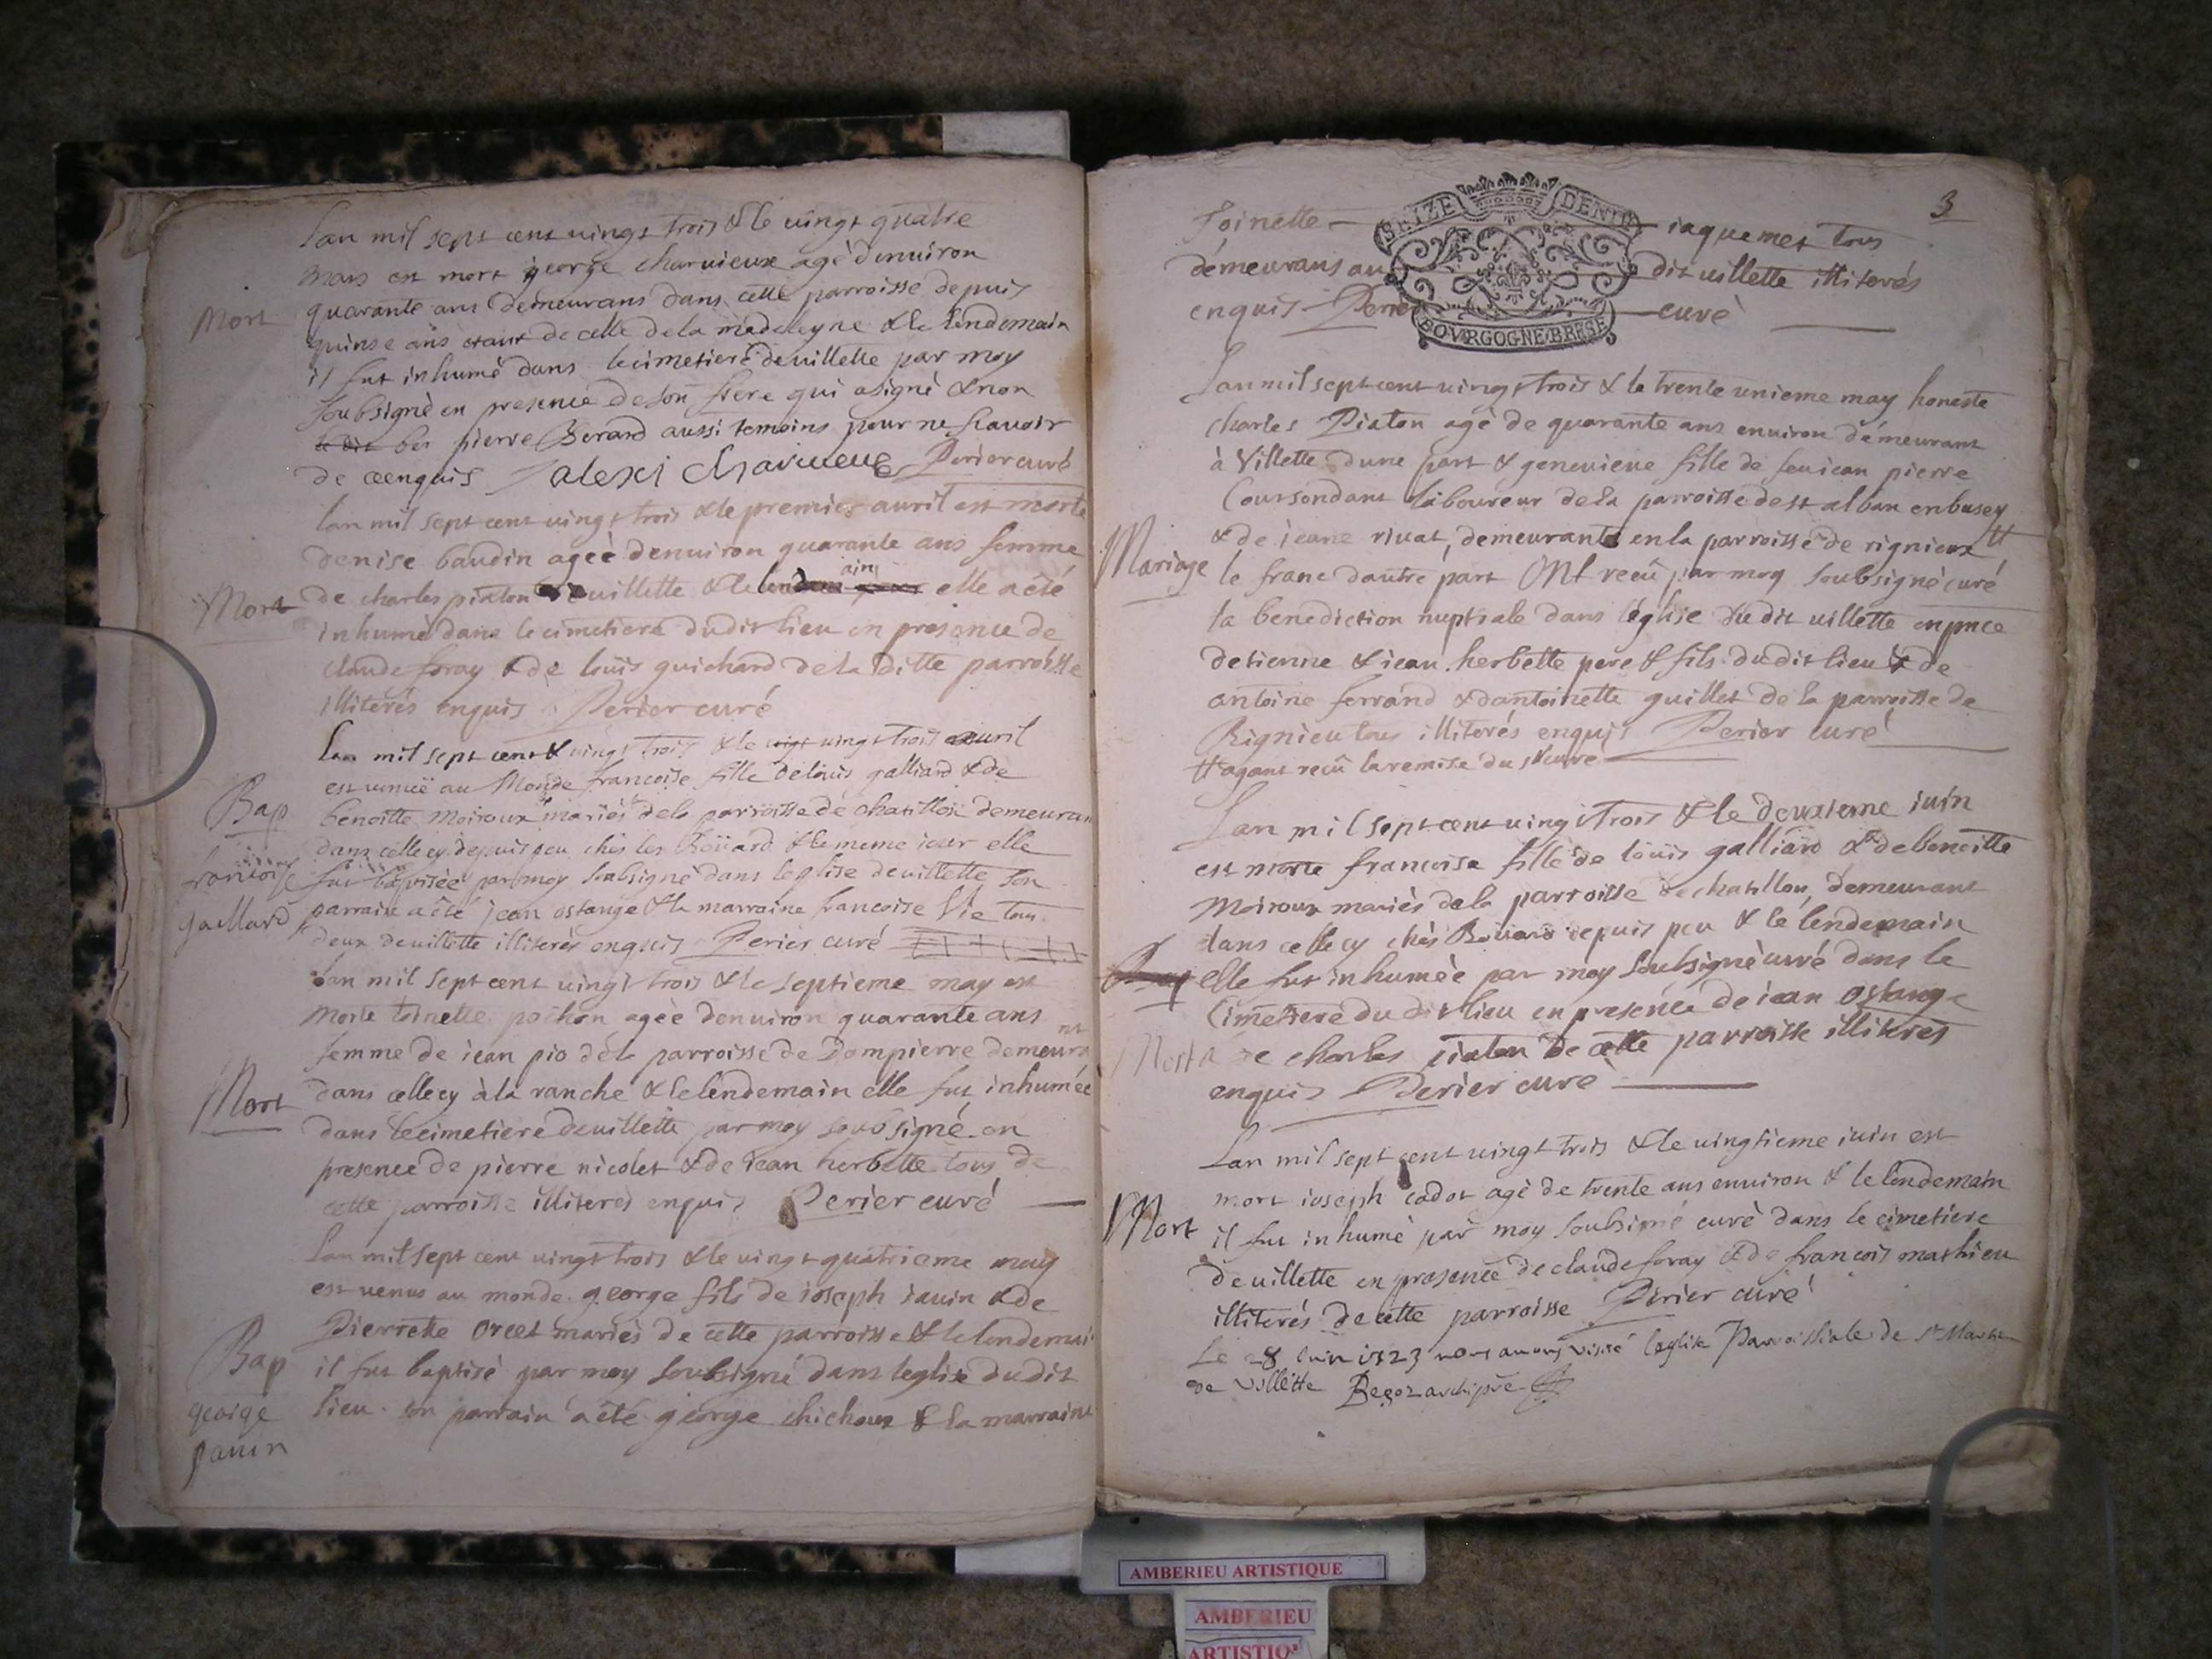 Lan mil sept cent vingt trois & le vingt quatre
mars est mort george charuieux agé denuiron
Mort
quarante ans demeurans dans cette parroisse depuis
quinse ans etant de celle de la madeleyne & le lendemain
il fut inhumé dans le cimetiere de uillette par moy
soubsigné en presence de son frere qui a signé & non
pierre Berard aussi temoins pour ne scauoir
de ce enquis alexi charuieux Perier curé
lan mil sept cent vingt trois & le premier auril est morte
denise baudin ageè denuiron quarante ans femme
Mort
de charles piaton uillette & le lendemain elle a eté
inhumé dans le cimetiere dudit lieu en presence de
claude foray & de louis guichard de la ditte parroisse
illiterés enquis Perier curé
Lan mil sept cent & vingt trois & le vingt trois auril
est venuë au Monde francoise fille de loüis galliard & de
Bap
benoitte Moiroux mariés de la parroisse de chatillon demeuran
dans celle cy depuis peu chés les Boüard & le meme iour elle
francoise
fut baptiseè par moy soubsigné dans leglise de uillette son
gaillard
parrain a eté jean ostange & la marraine francoise Vie tous
deux de uillette illiterés enquis Perier curé
Lan mil sept cent vingt trois & le septieme may est
morte toinette pochon ageè denuiron quarante ans
femme de iean pio de la parroisse de Dompierre demeurant
Mort
dans celle cy à la ranche & le lendemain elle fut inhumée
dans le cimetiere de uillette par moy soubsigné en
presence de pierre nicolet & de iean herbette tous de
cette parroisse illiterés enquis Perier curé
Lan mil sept cent vingt trois & le vingt quatrieme may
est venus au monde george fils de ioseph iauin & de
Pierrette orcet mariés de cette parroisse & le lendemai
Bap
il fut baptisé par moy soubsigné dans leglise dudit
george
lieu son parrain a eté george chichoux & la marraine
jauin
3
Toinette iaquemet tous
SEIZE DENIE
démeurans au dit uillette illiterés
enquis Perier curé
BOVRGOGNE BRESE
Lan mil sept cent vingt trois & le trente unieme may honeste
charles Piaton agé de quarante ans enuiron démeurant
à Villette dune part & geneuieue fille de feu iean pierre
Coursondant laboureur de la parroisse de st alban en busey
& de ieane riuat, demeurante en la parroisse de rignieux tt
Mariage
le franc dautre part Ont receû par moy soubsigné curé
la benediction nuptiale dans léglise du dit uillette en pnce
detienne & iean herbette pere & fils dudit lieu & de
antoine ferrand & dantoinette guillet de la parroisse de
Rignieu tous illiterés enquis Perier curé
tt ayant receû la remise du sr curé
Lan mil sept cent vingt trois & le deuxieme iuin
est morte francoise fille de loüis galliard & de benoitte
Moiroux mariés de la parroisse de chatillon, demeurant
dans celle cy chés Boüard depuis peu & le lendemain
elle fut inhumèe par moy soubsigné curé dans le
Cimetiere du dit lieu en presence de iean ostange
Mort
& de charles piaton de cette parroisse illiterés
enquis Perier curé
Lan mil sept cent vingt trois & le vingtieme iuin est
mort ioseph cadot agé de trente ans enuiron & le lendemain
Mort
il fut inhumé par moy soubsiné curé dans le cimetiere
de uillette en presence de claude foray & de francois mathieu
illiterés de cette parroisse Perier curé
Le 28 Iuin 1723 nous auons visité leglise Parroissiale de st Martin
de Villette Begoz archipre
AMBERIEU ARTISTIQUE
AMBERIEU
ARTISTIQ